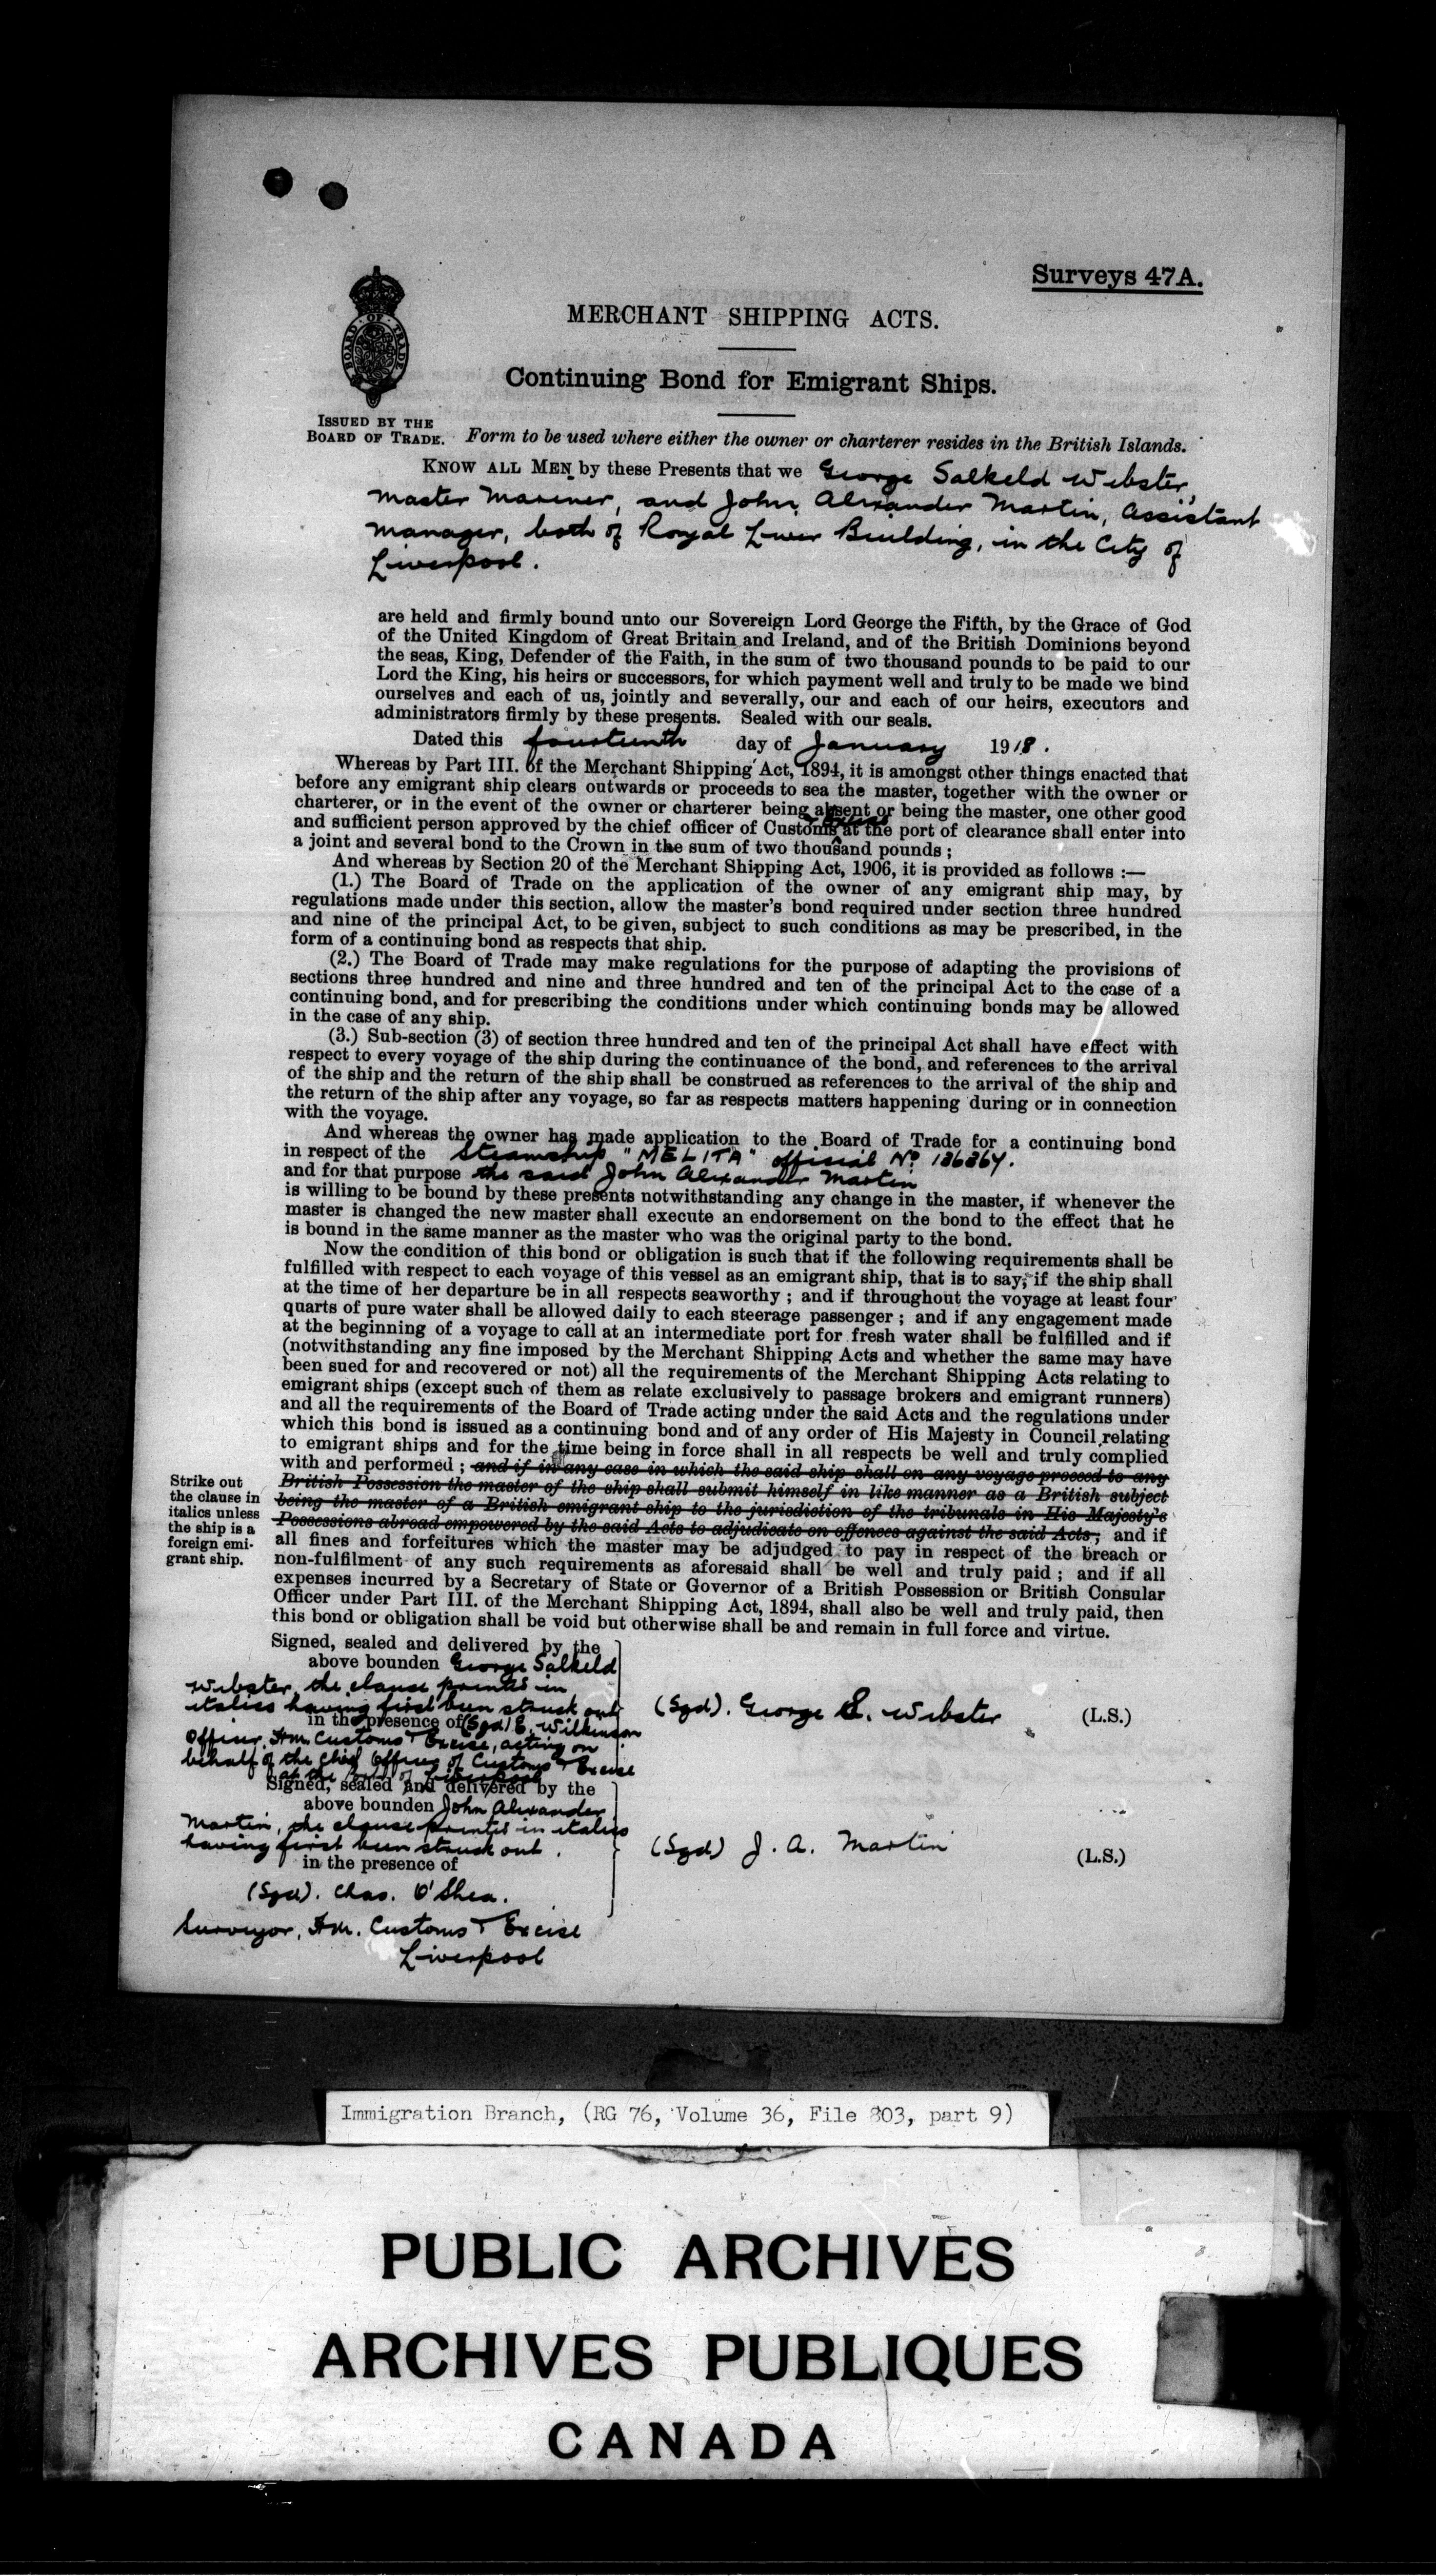 Surveys 47A.
BOARD OF TRADE
MERCHANT SHIPPING ACTS.
Continuing Bond for Emigrant Ships.
ISSUED BY THE
BOARD OF TRADE.
Form to be used where either the owner or charterer resides in the British Islands.
KNOW ALL MEN by these Presents that we George Salkeld Webster,
Master Mariner, and John Alexander Martin, Assistant
Manager, both of Royal Liver Building, in the City of
Liverpool.
are held and firmly bound unto our Sovereign Lord George the Fifth, by the Grace of God
of the United Kingdom of Great Britain and Ireland, and of the British Dominions beyond
the seas, King, Defender of the Faith, in the sum of two thousand pounds to be paid to our
Lord the King, his heirs or successors, for which payment well and truly to be made we bind
ourselves and each of us, jointly and severally, our and each of our heirs, executors and
administrators firmly by these presents. Sealed with our seals.
Dated this fourteenth day of January 1918.
Whereas by Part III. of the Merchant Shipping Act, 1894, it is amongst other things enacted that
before any emigrant ship clears outwards or proceeds to sea the master, together with the owner or
charterer, or in the event of the owner or charterer being absent or being the master, one other good
and sufficient person approved by the chief officer of Customs & Excise at the port of clearance shall enter into
a joint and several bond to the Crown in the sum of two thousand pounds ;
And whereas by Section 20 of the Merchant Shipping Act, 1906, it is provided as follows :—
(1.) The Board of Trade on the application of the owner of any emigrant ship may, by
regulations made under this section, allow the master's bond required under section three hundred
and nine of the principal Act, to be given, subject to such conditions as may be prescribed, in the
form of a continuing bond as respects that ship.
(2.) The Board of Trade may make regulations for the purpose of adapting the provisions of
sections three hundred and nine and three hundred and ten of the principal Act to the case of a
continuing bond, and for prescribing the conditions under which continuing bonds may be allowed
in the case of any ship.
(3.) Sub-section (3) of section three hundred and ten of the principal Act shall have effect with
respect to every voyage of the ship during the continuance of the bond, and references to the arrival
of the ship and the return of the ship shall be construed as references to the arrival of the ship and
the return of the ship after any voyage, so far as respects matters happening during or in connection
with the voyage.
And whereas the owner has made application to the Board of Trade for a continuing bond
in respect of the Steamship "MELITA" official No 136367.
and for that purpose the said John Alexander Martin
is willing to be bound by these presents notwithstanding any change in the master, if whenever the
master is changed the new master shall execute an endorsement on the bond to the effect that he
is bound in the same manner as the master who was the original party to the bond.
Now the condition of this bond or obligation is such that if the following requirements shall be
fulfilled with respect to each voyage of this vessel as an emigrant ship, that is to say, if the ship shall
at the time of her departure be in all respects seaworthy ; and if throughout the voyage at least four
quarts of pure water shall be allowed daily to each steerage passenger ; and if any engagement made
at the beginning of a voyage to call at an intermediate port for fresh water shall be fulfilled and if
(notwithstanding any fine imposed by the Merchant Shipping Acts and whether the same may have
been sued for and recovered or not) all the requirements of the Merchant Shipping Acts relating to
emigrant ships (except such of them as relate exclusively to passage brokers and emigrant runners)
and all the requirements of the Board of Trade acting under the said Acts and the regulations under
which this bond is issued as a continuing bond and of any order of His Majesty in Council relating
to emigrant ships and for the time being in force shall in all respects be well and truly complied
with and performed ; and if in any case in which the said ship shall on any voyage proceed to any
British Possession the master of the ship shall submit himself in like manner as a British subject
being the master of a British emigrant ship to the jurisdiction of the tribunals in His Majesty's
Possessions abroad empowered by the said Acts to adjudicate on offences against the said Acts ; and if
all fines and forfeitures which the master may be adjudged to pay in respect of the breach or
non-fulfilment of any such requirements as aforesaid shall be well and truly paid ; and if all
expenses incurred by a Secretary of State or Governor of a British Possession or British Consular
Officer under Part III. of the Merchant Shipping Act, 1894, shall also be well and truly paid, then
this bond or obligation shall be void but otherwise shall be and remain in full force and virtue.
Strike out
the clause in
italics unless
the ship is a
foreign emi-
grant ship.
Signed, sealed and delivered by the
above bounden George Salkeld
Webster, the clause printed in
italics having first been struck out
in the presence of (Sgd) E. Wilkinson
Officer, H.M. Customs & Excise, acting on
behalf of the Chief Officer of Customs & Excise
at the Port of Liverpool
(Sgd). George S. Webster (L.S.)
Signed, sealed and delivered by the
above bounden John Alexander
Martin, the clause printed in italics
having first been struck out.
in the presence of
(Sgd) J. A. Martin (L.S.)
(Sgd). Chas. O'Shea.
Surveyor, H.M. Customs & Excise
Liverpool
Immigration Branch, (RG 76, Volume 36, File 803, part 9)
PUBLIC ARCHIVES
ARCHIVES PUBLIQUES
CANADA